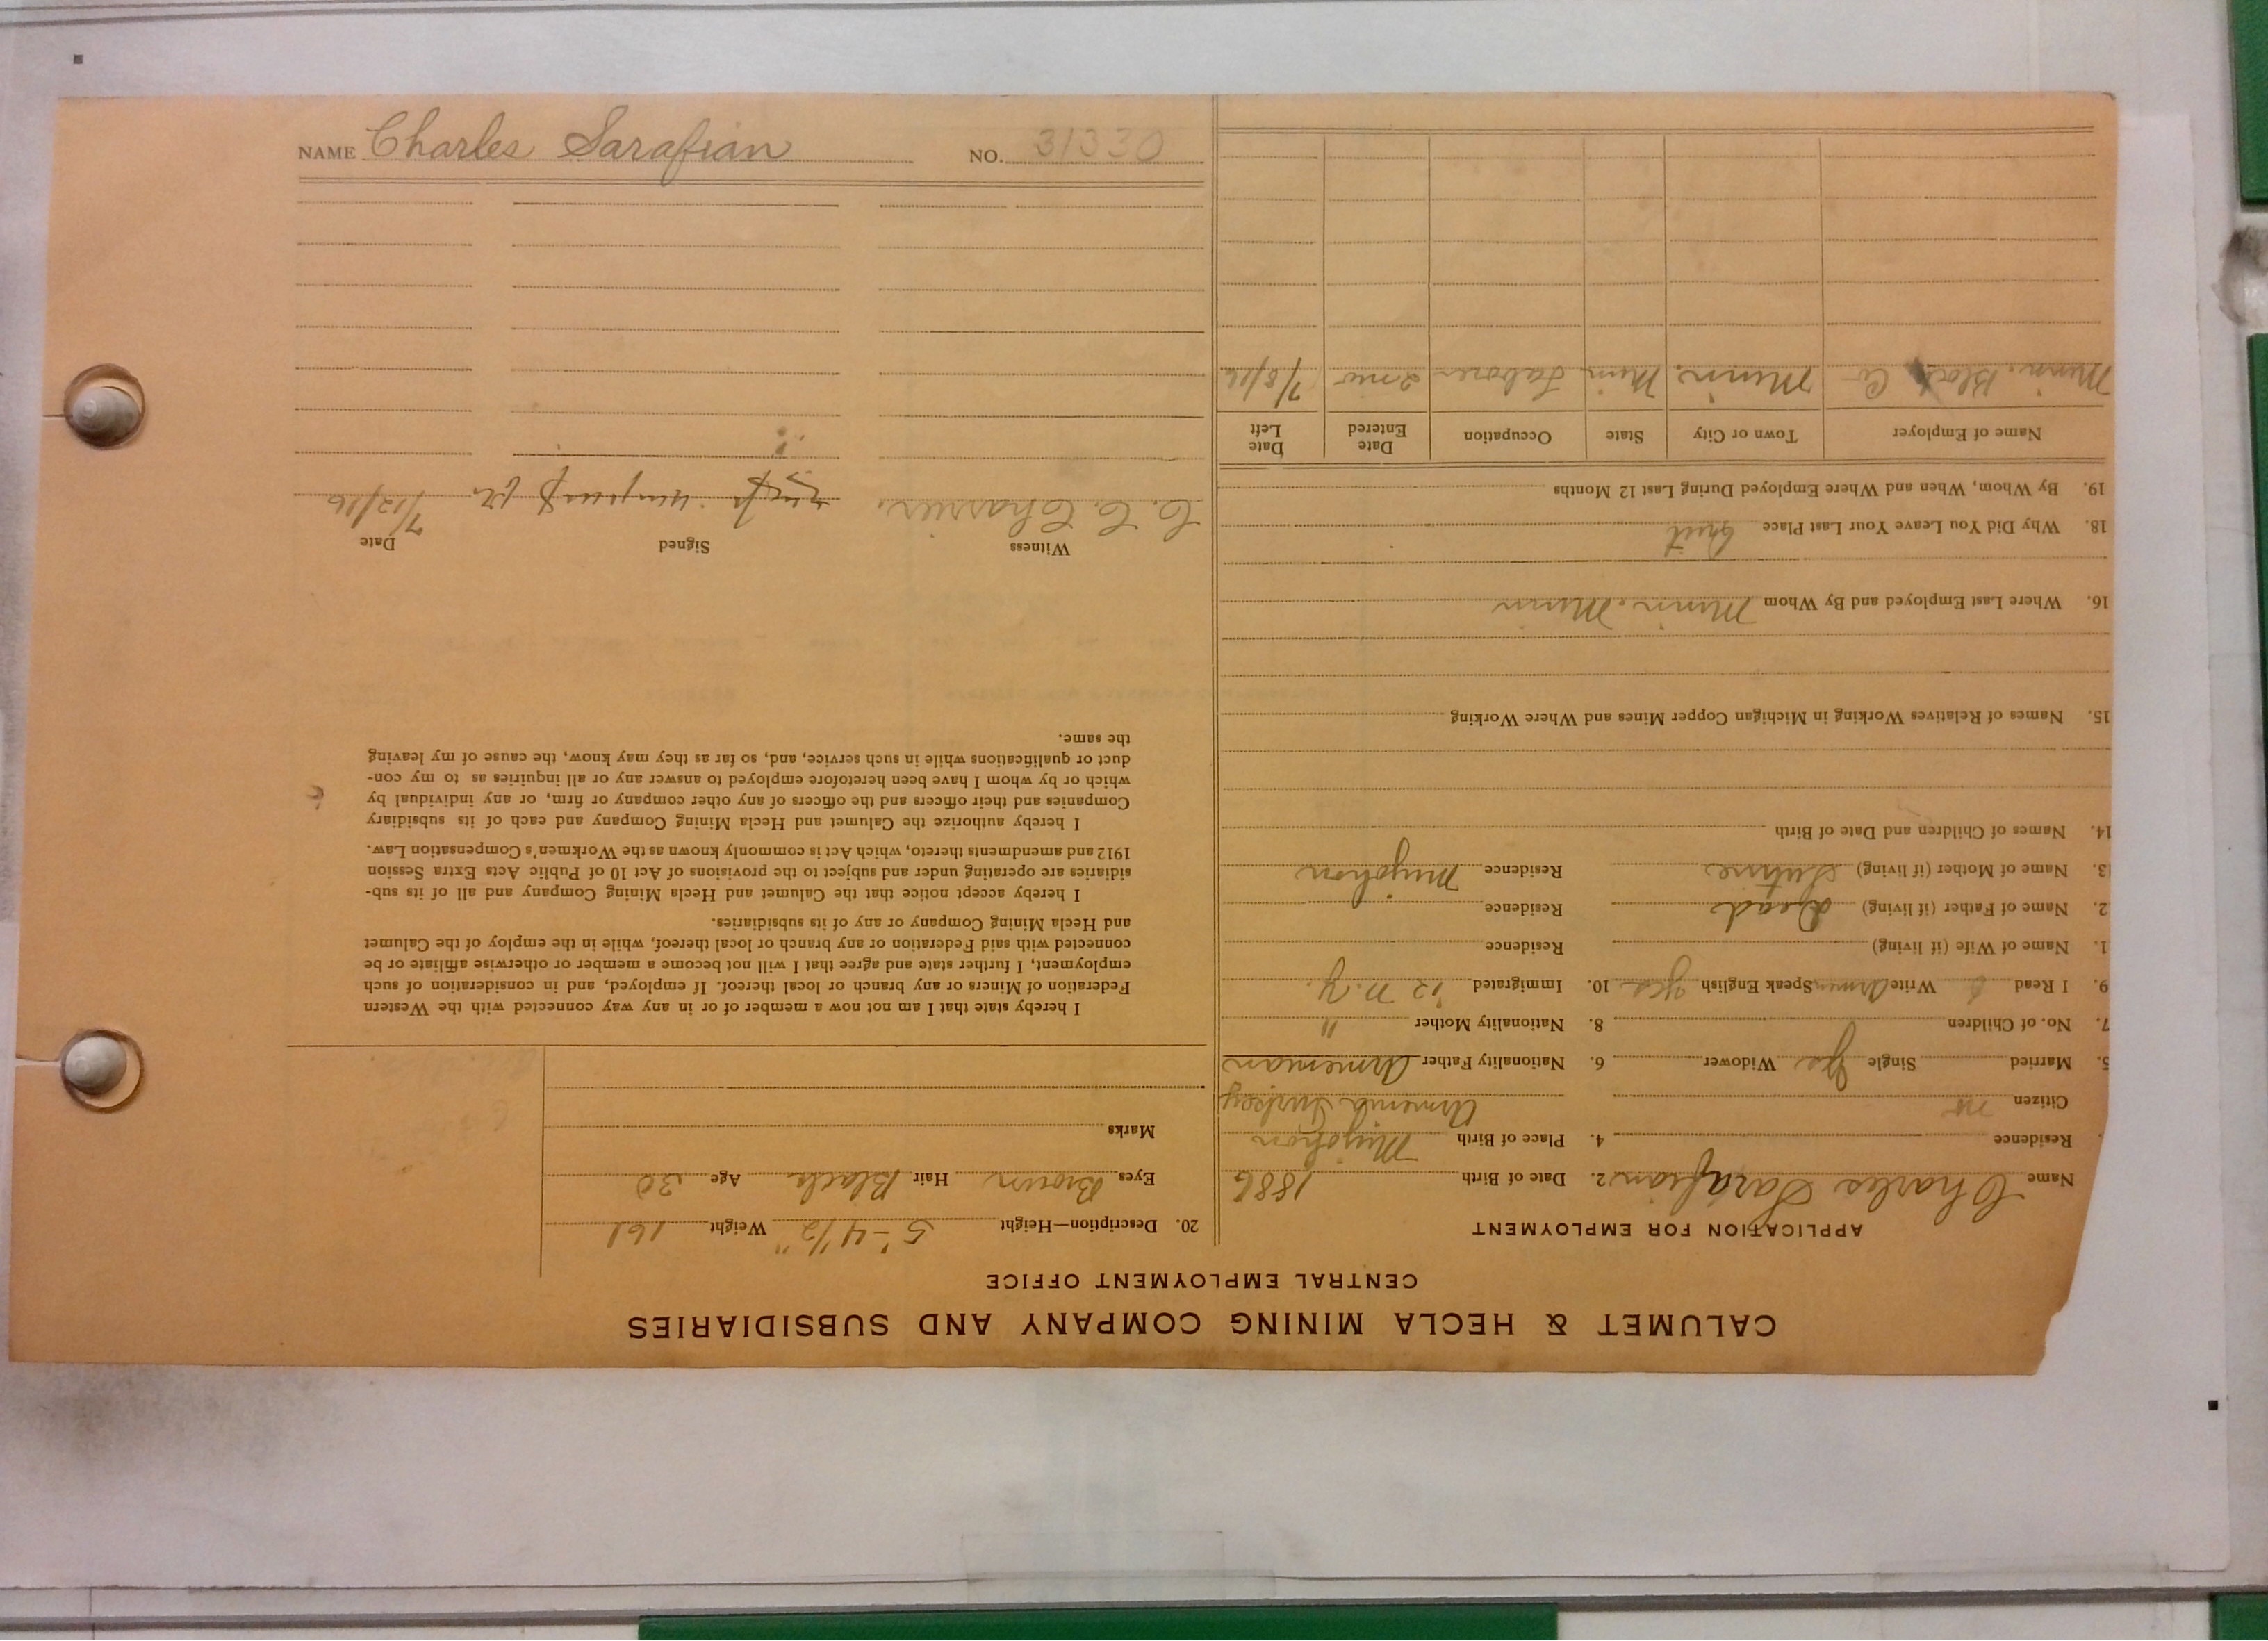 CALUMET & HECLA MINING COMPANY AND SUBSIDIARIES
CENTRAL EMPLOYMENT OFFICE
APPLICATION FOR EMPLOYMENT
Name Charles Sarafian 2. Date of Birth 1886
Residence 4. Place of Birth
Citizen no Armenia Turkey
5. Married Single Yes Widower 6. Nationality Father Armenian
7. No. of Children 8. Nationality Mother "
9. I Read Write Armen Speak English yes 10. Immigrated '12 N.Y.
1. Name of Wife (if living) Residence
2. Name of Father (if living) Dead Residence
13. Name of Mother (if living) Residence
14. Names of Children and Date of Birth
15. Names of Relatives Working in Michigan Copper Mines and Where Working
16. Where Last Employed and By Whom Minn. Minn
18. Why Did You Leave Your Last Place Quit
19. By Whom, When and Where Employed During Last 12 Months
Name of Employer Town or City State Occupation Date Entered Date Left
Minn. Block Co Minn. Minn Laborer 2 mo 7/8/16
20. Description—Height 5'-4 1/2" Weight 161
Eyes Brown Hair Black Age 30
Marks
I hereby state that I am not now a member of or in any way connected with the Western
Federation of Miners or any branch or local thereof. If employed, and in consideration of such
employment, I further state and agree that I will not become a member or otherwise affiliate or be
connected with said Federation or any branch or local thereof, while in the employ of the Calumet
and Hecla Mining Company or any of its subsidiaries.
I hereby accept notice that the Calumet and Hecla Mining Company and all of its sub-
sidiaries are operating under and subject to the provisions of Act 10 of Public Acts Extra Session
1912 and amendments thereto, which Act is commonly known as the Workmen's Compensation Law.
I hereby authorize the Calumet and Hecla Mining Company and each of its subsidiary
Companies and their officers and the officers of any other company or firm, or any individual by
which or by whom I have been heretofore employed to answer any or all inquiries as to my con-
duct or qualifications while in such service, and, so far as they may know, the cause of my leaving
the same.
Witness Signed Date
C. C. Charrier. 7/12/16
NAME Charles Sarafian NO. 31330